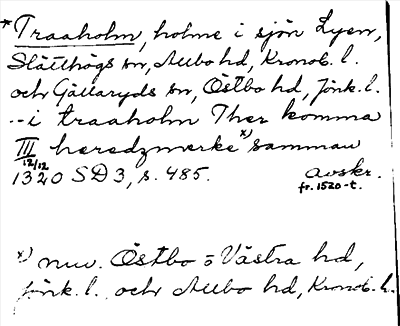 *Traaholm, holme i sjön Lyen,
Slätthögs sn, Allbo hd, Kronob. l.
och Gällaryds sn, Östbo hd, Jönk. l.
--i traaholm Ther komma
III heredzmerke x) samman
12/12
1320 SD 3, s. 485. avskr.
fr. 1520-t.
x) nuv. Östbo o Västra hd,
Jönk. l. och Allbo hd, Kronob. l.